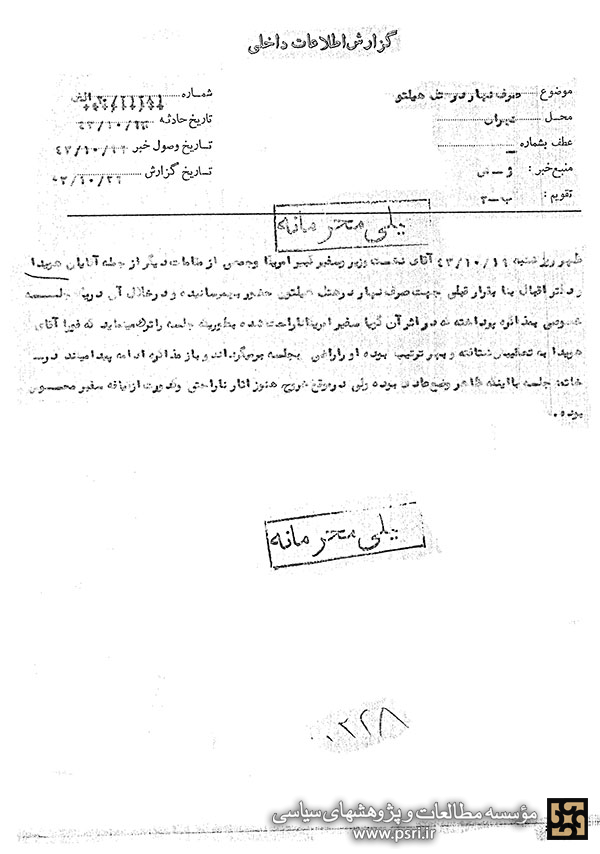 گزارش اطلاعات داخلی
موضوع صرف نهار در هتل هیلتون
شماره الف
محل تهران
تاریخ حادثه
عطف بشماره
تاریخ وصول خبر
منبع خبر :
تاریخ گزارش
تقویم : ب-۲
خیلی محرمانه
ظهر روز شنبه آقای نخست وزیر وسفیر کبیر امریکا وبعضی از مقامات دیگر از جمله آقایان هویدا
و دکتر اقبال بنا بقرار قبلی جهت صرف نهار در هتل هیلتون حضور بهمرسانیده و در خلال آن در یک جلسه
خصوصی بمذاکره پرداخته که در اثر آن گویا سفیر امریکا ناراحت شده بطوریکه جلسه را ترک مینماید که فورا آقای
هویدا به تعقیبش شتافته و بهر ترتیب بوده او را راضی بجلسه برمیگرداند و باز مذاکره ادامه پیدا میکند در
خاتمه جلسه با اینکه ظاهر وضع عادی بوده ولی در موقع خروج هنوز آثار ناراحتی وکدورت از قیافه سفیر محسوس
بوده .
خیلی محرمانه
۰۰۳۲۲۸
مؤسسه مطالعات و پژوهشهای سیاسی
www.psri.ir